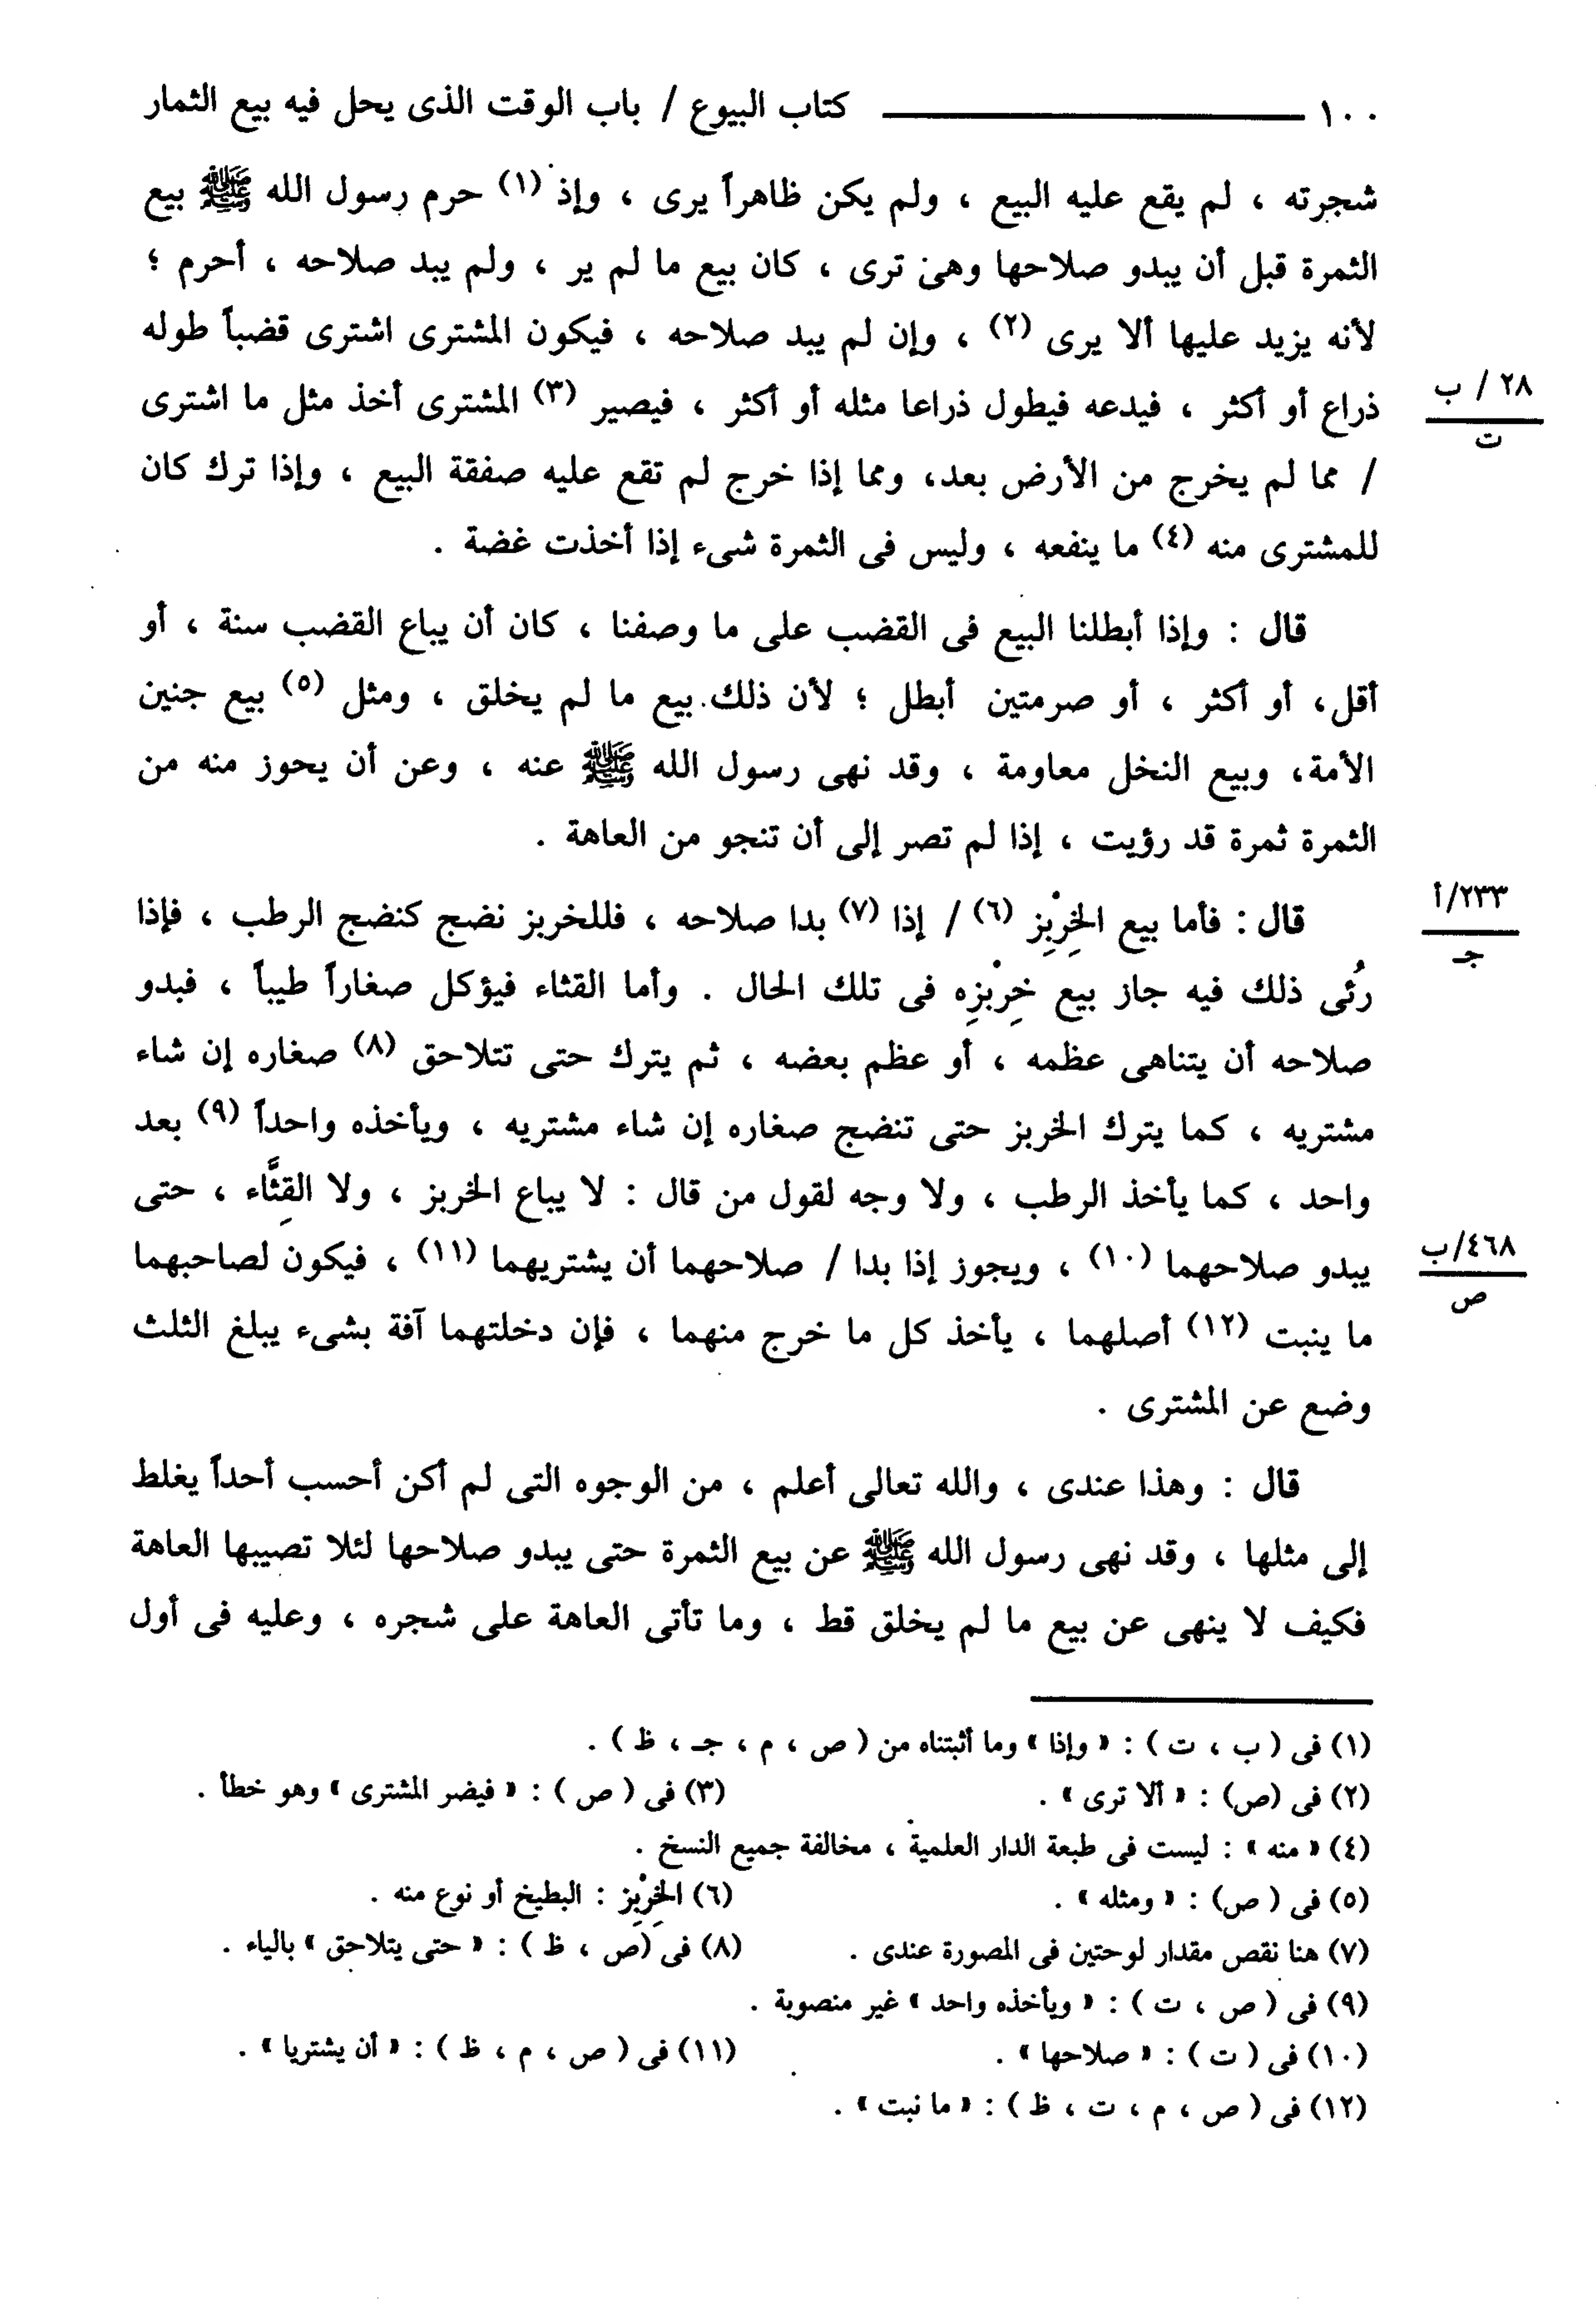 ١٠٠ ــــــــــــــ كتاب البيوع / باب الوقت الذى يحل فيه بيع الثمار
شجرته ، لم يقع عليه البيع ، ولم يكن ظاهراً يرى ، وإذ (١) حرم رسول الله ﷺ بيع
الثمرة قبل أن يبدو صلاحها وهى ترى ، كان بيع ما لم ير ، ولم يبد صلاحه ، أحرم ؛
لأنه يزيد عليها ألا يرى (٢) ، وإن لم يبد صلاحه ، فيكون المشترى اشترى قضباً طوله
ذراع أو أكثر ، فيدعه فيطول ذراعا مثله أو أكثر ، فيصير (٣) المشترى أخذ مثل ما اشترى
٢٨ / ب
ت
/ مما لم يخرج من الأرض بعد، ومما إذا خرج لم تقع عليه صفقة البيع ، وإذا ترك كان
للمشترى منه (٤) ما ينفعه ، وليس فى الثمرة شىء إذا أخذت غضة .
قال : وإذا أبطلنا البيع فى القضب على ما وصفنا ، كان أن يباع القضب سنة ، أو
أقل، أو أكثر ، أو صرمتين أبطل ؛ لأن ذلك بيع ما لم يخلق ، ومثل (٥) بيع جنين
الأمة، وبيع النخل معاومة ، وقد نهى رسول الله ﷺ عنه ، وعن أن يحوز منه من
الثمرة ثمرة قد رؤيت ، إذا لم تصر إلى أن تنجو من العاهة .
قال : فأما بيع الخِرْبِز (٦) / إذا (٧) بدا صلاحه ، فللخربز نضج كنضج الرطب ، فإذا
٢٣٣/أ
جـ
رُئى ذلك فيه جاز بيع خِرْبزِه فى تلك الحال . وأما القثاء فيؤكل صغاراً طيباً ، فبدو
صلاحه أن يتناهى عظمه ، أو عظم بعضه ، ثم يترك حتى تتلاحق (٨) صغاره إن شاء
مشتريه ، كما يترك الخربز حتى تنضج صغاره إن شاء مشتريه ، ويأخذه واحداً (٩) بعد
واحد ، كما يأخذ الرطب ، ولا وجه لقول من قال : لا يباع الخربز ، ولا القِثَّاء ، حتى
يبدو صلاحهما (١٠) ، ويجوز إذا بدا / صلاحهما أن يشتريهما (١١) ، فيكون لصاحبهما
٤٦٨/ب
ص
ما ينبت (١٢) أصلهما ، يأخذ كل ما خرج منهما ، فإن دخلتهما آفة بشىء يبلغ الثلث
وضع عن المشترى .
قال : وهذا عندى ، والله تعالى أعلم ، من الوجوه التى لم أكن أحسب أحداً يغلط
إلى مثلها ، وقد نهى رسول الله ﷺ عن بيع الثمرة حتى يبدو صلاحها لئلا تصيبها العاهة
فكيف لا ينهى عن بيع ما لم يخلق قط ، وما تأتى العاهة على شجره ، وعليه فى أول
(١) فى ( ب ، ت ) : « وإذا » وما أثبتناه من ( ص ، م ، جـ ، ظ ) .
(٢) فى (ص) : « ألا ترى » . (٣) فى ( ص ) : « فيضر المشترى » وهو خطأ .
(٤) « منه » : ليست فى طبعة الدار العلمية ، مخالفة جميع النسخ .
(٥) فى ( ص) : « ومثله » . (٦) الخِرْبِز : البطيخ أو نوع منه .
(٧) هنا نقص مقدار لوحتين فى المصورة عندى . (٨) فى (ص ، ظ ) : « حتى يتلاحق » بالياء .
(٩) فى ( ص ، ت ) : « ويأخذه واحد » غير منصوبة .
(١٠) فى ( ت ) : « صلاحها » . (١١) فى ( ص ، م ، ظ ) : « أن يشتريا » .
(١٢) فى ( ص ، م ، ت ، ظ ) : « ما نبت » .